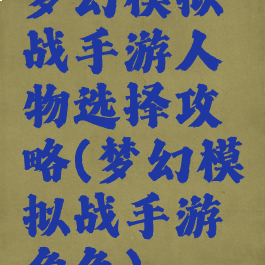 梦幻模拟
战手游人
物选择攻
略(梦幻模
拟战手游
角色)